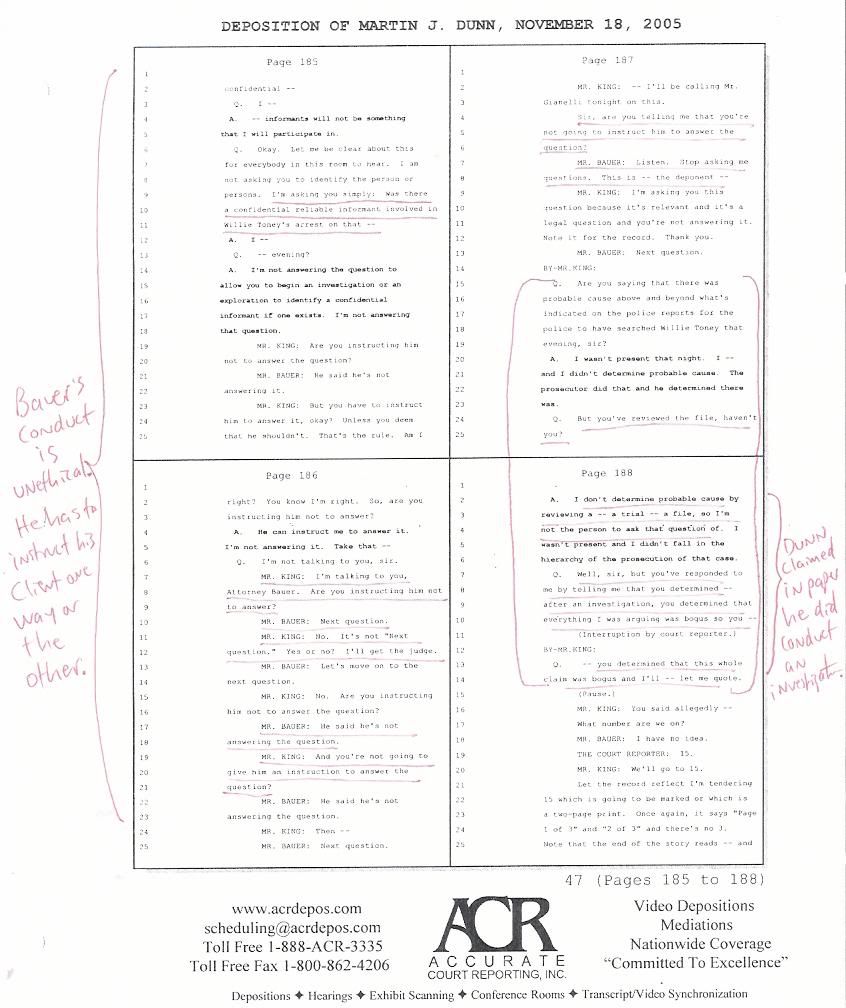 DEPOSITION OF MARTIN J. DUNN, NOVEMBER 18, 2005
Page 185
1
2 confidential --
3 Q. I --
4 A. -- informants will not be something
5 that I will participate in.
6 Q. Okay. Let me be clear about this
7 for everybody in this room to hear. I am
8 not asking you to identify the person or
9 persons. I'm asking you simply: Was there
10 a confidential reliable informant involved in
11 Willie Toney's arrest on that --
12 A. I --
13 Q. -- evening?
14 A. I'm not answering the question to
15 allow you to begin an investigation or an
16 exploration to identify a confidential
17 informant if one exists. I'm not answering
18 that question.
19 MR. KING: Are you instructing him
20 not to answer the question?
21 MR. BAUER: He said he's not
22 answering it.
23 MR. KING: But you have to instruct
24 him to answer it, okay? Unless you deem
25 that he shouldn't. That's the rule. Am I
Page 186
1
2 right? You know I'm right. So, are you
3 instructing him not to answer?
4 A. He can instruct me to answer it.
5 I'm not answering it. Take that --
6 Q. I'm not talking to you, sir.
7 MR. KING: I'm talking to you,
8 Attorney Bauer. Are you instructing him not
9 to answer?
10 MR. BAUER: Next question.
11 MR. KING: No. It's not "Next
12 question." Yes or no? I'll get the judge.
13 MR. BAUER: Let's move on to the
14 next question.
15 MR. KING: No. Are you instructing
16 him not to answer the question?
17 MR. BAUER: He said he's not
18 answering the question.
19 MR. KING: And you're not going to
20 give him an instruction to answer the
21 question?
22 MR. BAUER: He said he's not
23 answering the question.
24 MR. KING: Then --
25 MR. BAUER: Next question.
Page 187
1
2 MR. KING: -- I'll be calling Mr.
3 Gianelli tonight on this.
4 Sir, are you telling me that you're
5 not going to instruct him to answer the
6 question?
7 MR. BAUER: Listen. Stop asking me
8 questions. This is -- the deponent --
9 MR. KING: I'm asking you this
10 question because it's relevant and it's a
11 legal question and you're not answering it.
12 Note it for the record. Thank you.
13 MR. BAUER: Next question.
14 BY-MR.KING:
15 Q. Are you saying that there was
16 probable cause above and beyond what's
17 indicated on the police reports for the
18 police to have searched Willie Toney that
19 evening, sir?
20 A. I wasn't present that night. I --
21 and I didn't determine probable cause. The
22 prosecutor did that and he determined there
23 was.
24 Q. But you've reviewed the file, haven't
25 you?
Page 188
1
2 A. I don't determine probable cause by
3 reviewing a -- a trial -- a file, so I'm
4 not the person to ask that question of. I
5 wasn't present and I didn't fall in the
6 hierarchy of the prosecution of that case.
7 Q. Well, sir, but you've responded to
8 me by telling me that you determined --
9 after an investigation, you determined that
10 everything I was arguing was bogus so you --
11 (Interruption by court reporter.)
12 BY-MR.KING:
13 Q. -- you determined that this whole
14 claim was bogus and I'll -- let me quote.
15 (Pause.)
16 MR. KING: You said allegedly --
17 What number are we on?
18 MR. BAUER: I have no idea.
19 THE COURT REPORTER: 15.
20 MR. KING: We'll go to 15.
21 Let the record reflect I'm tendering
22 15 which is going to be marked or which is
23 a two-page print. Once again, it says "Page
24 1 of 3" and "2 of 3" and there's no 3.
25 Note that the end of the story reads -- and
Bauer's
conduct
is
unethical.
He has to
instruct his
Client one
way or
the
other.
DUNN
claimed
in paper
he did
conduct
an
investigat.
47 (Pages 185 to 188)
www.acrdepos.com
scheduling@acrdepos.com
Toll Free 1-888-ACR-3335
Toll Free Fax 1-800-862-4206
ACR
ACCURATE
COURT REPORTING, INC.
Video Depositions
Mediations
Nationwide Coverage
"Committed To Excellence"
Depositions ✦ Hearings ✦ Exhibit Scanning ✦ Conference Rooms ✦ Transcript/Video Synchronization